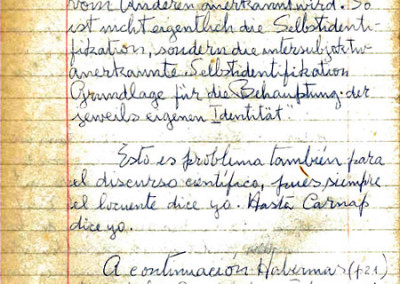 vom Anderen anerkannt wird. So
ist nicht eigentlich die Selbstidenti-
fikation, sondern die intersubjektiv
anerkannte Selbstidentifikation
Grundlage für die Behauptung der
jeweils eigenen Identität."
Esto es problema también para
el discurso científico, pues siempre
el locuente dice yo. Hasta Carnap
dice yo.
A continuación Habermas (p 21)